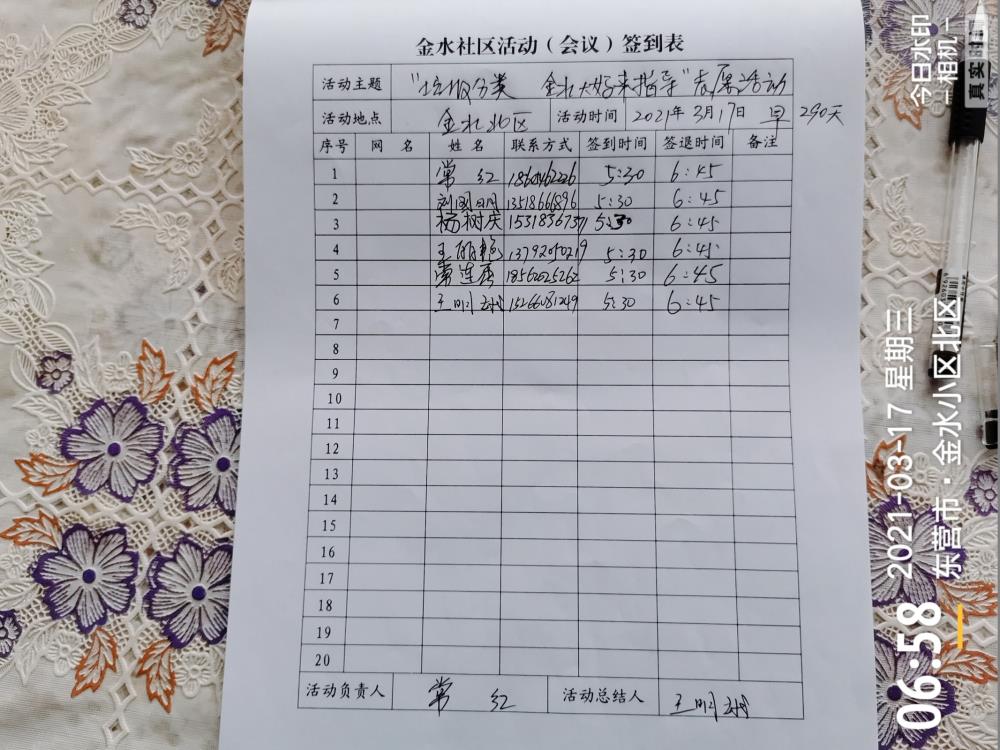 金水社区活动（会议）签到表
活动主题 "垃圾分类 金水大好来指导"志愿活动
活动地点 金水北区 活动时间 2021年3月17日 早 290天
序号 网名 姓名 联系方式 签到时间 签退时间 备注
1 常红 5:30 6:45
2 5:30 6:45
3 杨树庆 15318367377 5:30 6:45
4 王丽艳 13792050219 5:30 6:45
5 常连秀 18562025262 5:30 6:45
6 王明 15266081249 5:30 6:45
7
8
9
10
11
12
13
14
15
16
17
18
19
20
活动负责人 常红 活动总结人 王明
今日水印
相机
真实时间
06:58
2021-03-17 星期三
东营市·金水小区北区